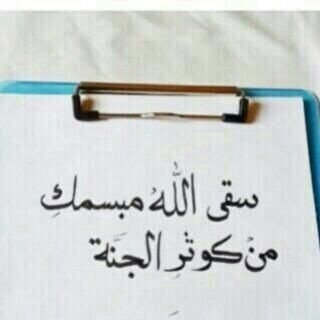 سقى الله مبسمكِ
من كوثرِ الجنة